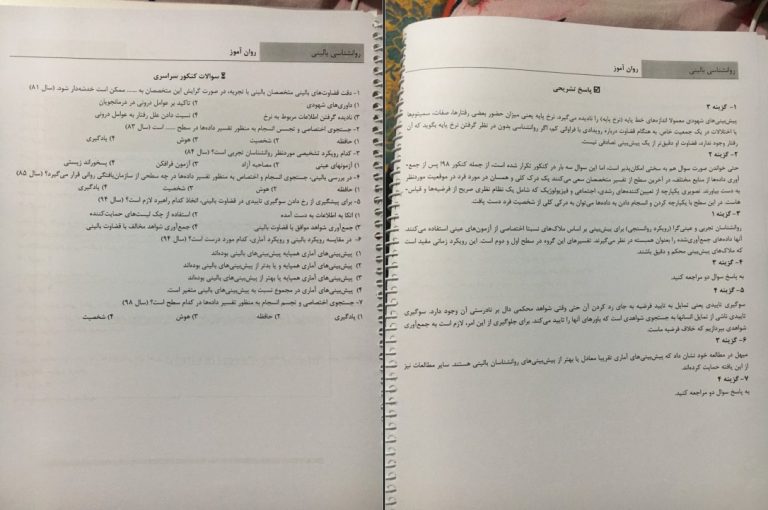 روانشناسی بالینی
روان آموز
سوالات کنکور سراسری
۱- دقت قضاوت‌های بالینی متخصصان بالینی با تجربه، در صورت گرایش این متخصصان به ...... ممکن است خدشه‌دار شود. (سال ۸۱)
۱) داوری‌های شهودی ۲) تاکید بر عوامل درونی در درمانجویان
۳) نادیده گرفتن اطلاعات مربوط به نرخ ۴) نسبت دادن علل رفتار به عوامل درونی
۲- جستجوی اختصاصی و تجسس انسجام به منظور تفسیر داده‌ها در سطح ...... است (سال ۸۳)
۱) حافظه ۲) شخصیت ۳) هوش ۴) یادگیری
۳- کدام رویکرد تشخیصی موردنظر روانشناسان تجربی است؟ (سال ۸۴)
۱) آزمونهای عینی ۲) مصاحبه آزاد ۳) آزمون فرافکن ۴) پسخوراند زیستی
۴- در بررسی بالینی، جستجوی انسجام و اختصاص به منظور تفسیر داده‌ها در چه سطحی از سازمان‌یافتگی روانی قرار می‌گیرد؟ (سال ۸۵)
۱) حافظه ۲) هوش ۳) شخصیت ۴) یادگیری
۵- برای پیشگیری از رخ دادن سوگیری تاییدی در قضاوت بالینی، اتخاذ کدام راهبرد لازم است؟ (سال ۹۴)
۱) اتکا به اطلاعات به دست آمده ۲) استفاده از چک لیست‌های حمایت‌کننده
۳) جمع‌آوری شواهد موافق با قضاوت بالینی ۴) جمع‌آوری شواهد مخالف با قضاوت بالینی
۶- در مقایسه رویکرد بالینی و رویکرد آماری، کدام مورد درست است؟ (سال ۹۴)
۱) پیش‌بینی‌های آماری همپایه پیش‌بینی‌های بالینی بوده‌اند
۲) پیش‌بینی‌های آماری همپایه و یا بدتر از پیش‌بینی‌های بالینی بوده‌اند
۳) پیش‌بینی‌های آماری همپایه یا بهتر از پیش‌بینی‌های بالینی بوده‌اند.
۴) پیش‌بینی‌های آماری در مجموع نسبت به پیش‌بینی‌های بالینی متغیر است.
۷- جستجوی اختصاصی و تجسم انسجام به منظور تفسیر داده‌ها در کدام سطح است؟ (سال ۹۸)
۱) یادگیری ۲) حافظه ۳) هوش ۴) شخصیت
روانشناسی بالینی
روان آموز
پاسخ تشریحی
۱- گزینه ۳
پیش‌بینی‌های شهودی معمولا اندازه‌های خط پایه (نرخ پایه) را نادیده می‌گیرد. نرخ پایه یعنی میزان حضور بعضی رفتارها، صفات، سمپتوم‌ها
یا اختلالات در یک جمعیت خاص. به هنگام قضاوت درباره رویدادی با فراوانی کم، اگر روانشناسی بدون در نظر گرفتن نرخ پایه بگوید که آن
رفتار وجود ندارد، قضاوت او دقیق‌تر از یک پیش‌بینی تصادفی نیست.
۲- گزینه ۲
حتی خواندن صورت سوال هم به سختی امکان‌پذیر است، اما این سوال سه بار در کنکور تکرار شده است، از جمله کنکور ۹۸! پس از جمع-
آوری داده‌ها از منابع مختلف، در آخرین سطح از تفسیر متخصصان سعی می‌کنند یک درک کلی و همسان در مورد فرد در موقعیت موردنظر
به دست بیاورند. تصویری یکپارچه از تعیین‌کننده‌های رشدی، اجتماعی و فیزیولوژیک که شامل یک نظام نظری صریح از فرضیه‌ها و قیاس-
هاست. در این سطح با یکپارچه کردن و انسجام دادن به داده‌ها می‌توان به درکی کلی از شخصیت فرد دست یافت.
۳- گزینه ۱
روانشناسان تجربی و عینی‌گرا (رویکرد روانسنجی) برای پیش‌بینی بر اساس ملاک‌های نسبتا اختصاصی از آزمون‌های عینی استفاده می‌کنند.
آنها داده‌های جمع‌آوری‌شده را بعنوان همبسته در نظر می‌گیرند. تفسیرهای این گروه در سطح اول و دوم است. این رویکرد زمانی مفید است
که ملاک‌های پیش‌بینی محکم و دقیق باشند.
۴- گزینه ۳
به پاسخ سوال دو مراجعه کنید.
۵- گزینه ۴
سوگیری تاییدی یعنی تمایل به تایید فرضیه به جای رد کردن آن حتی وقتی شواهد محکمی دال بر نادرستی آن وجود دارد. سوگیری
تاییدی ناشی از تمایل انسانها به جستجوی شواهدی است که باورهای آنها را تایید می‌کند. برای جلوگیری از این امر، لازم است به جمع‌آوری
شواهدی بپردازیم که خلاف فرضیه ماست.
۶- گزینه ۳
میهل در مطالعه خود نشان داد که پیش‌بینی‌های آماری تقریبا معادل یا بهتر از پیش‌بینی‌های روانشناسان بالینی هستند. سایر مطالعات نیز
از این یافته حمایت کرده‌اند.
۷- گزینه ۴
به پاسخ سوال دو مراجعه کنید.